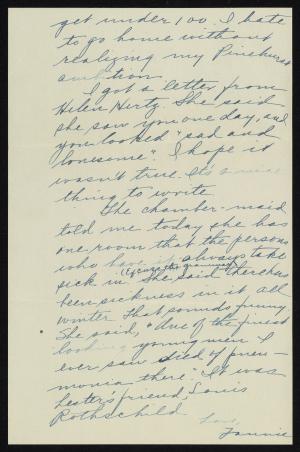 get under 100. I hate
to go home without
realizing my Pinehurst
ambition.
I got a letter from
Helen Hertz. She said
she saw you one day, and
you looked "sad and
lonesome". I hope it
wasn't true. It's a nice
thing to write
The chamber-maid
told me today she has
one room that the persons
who have it always take
sick in. She said there has
been sickness in it all
winter. That sounds funny.
She said, "One of the finest
looking young men I
ever saw died of pneu-
monia there". It was
Lester's friend, Louis
Rothschild.
Love,
Fannie